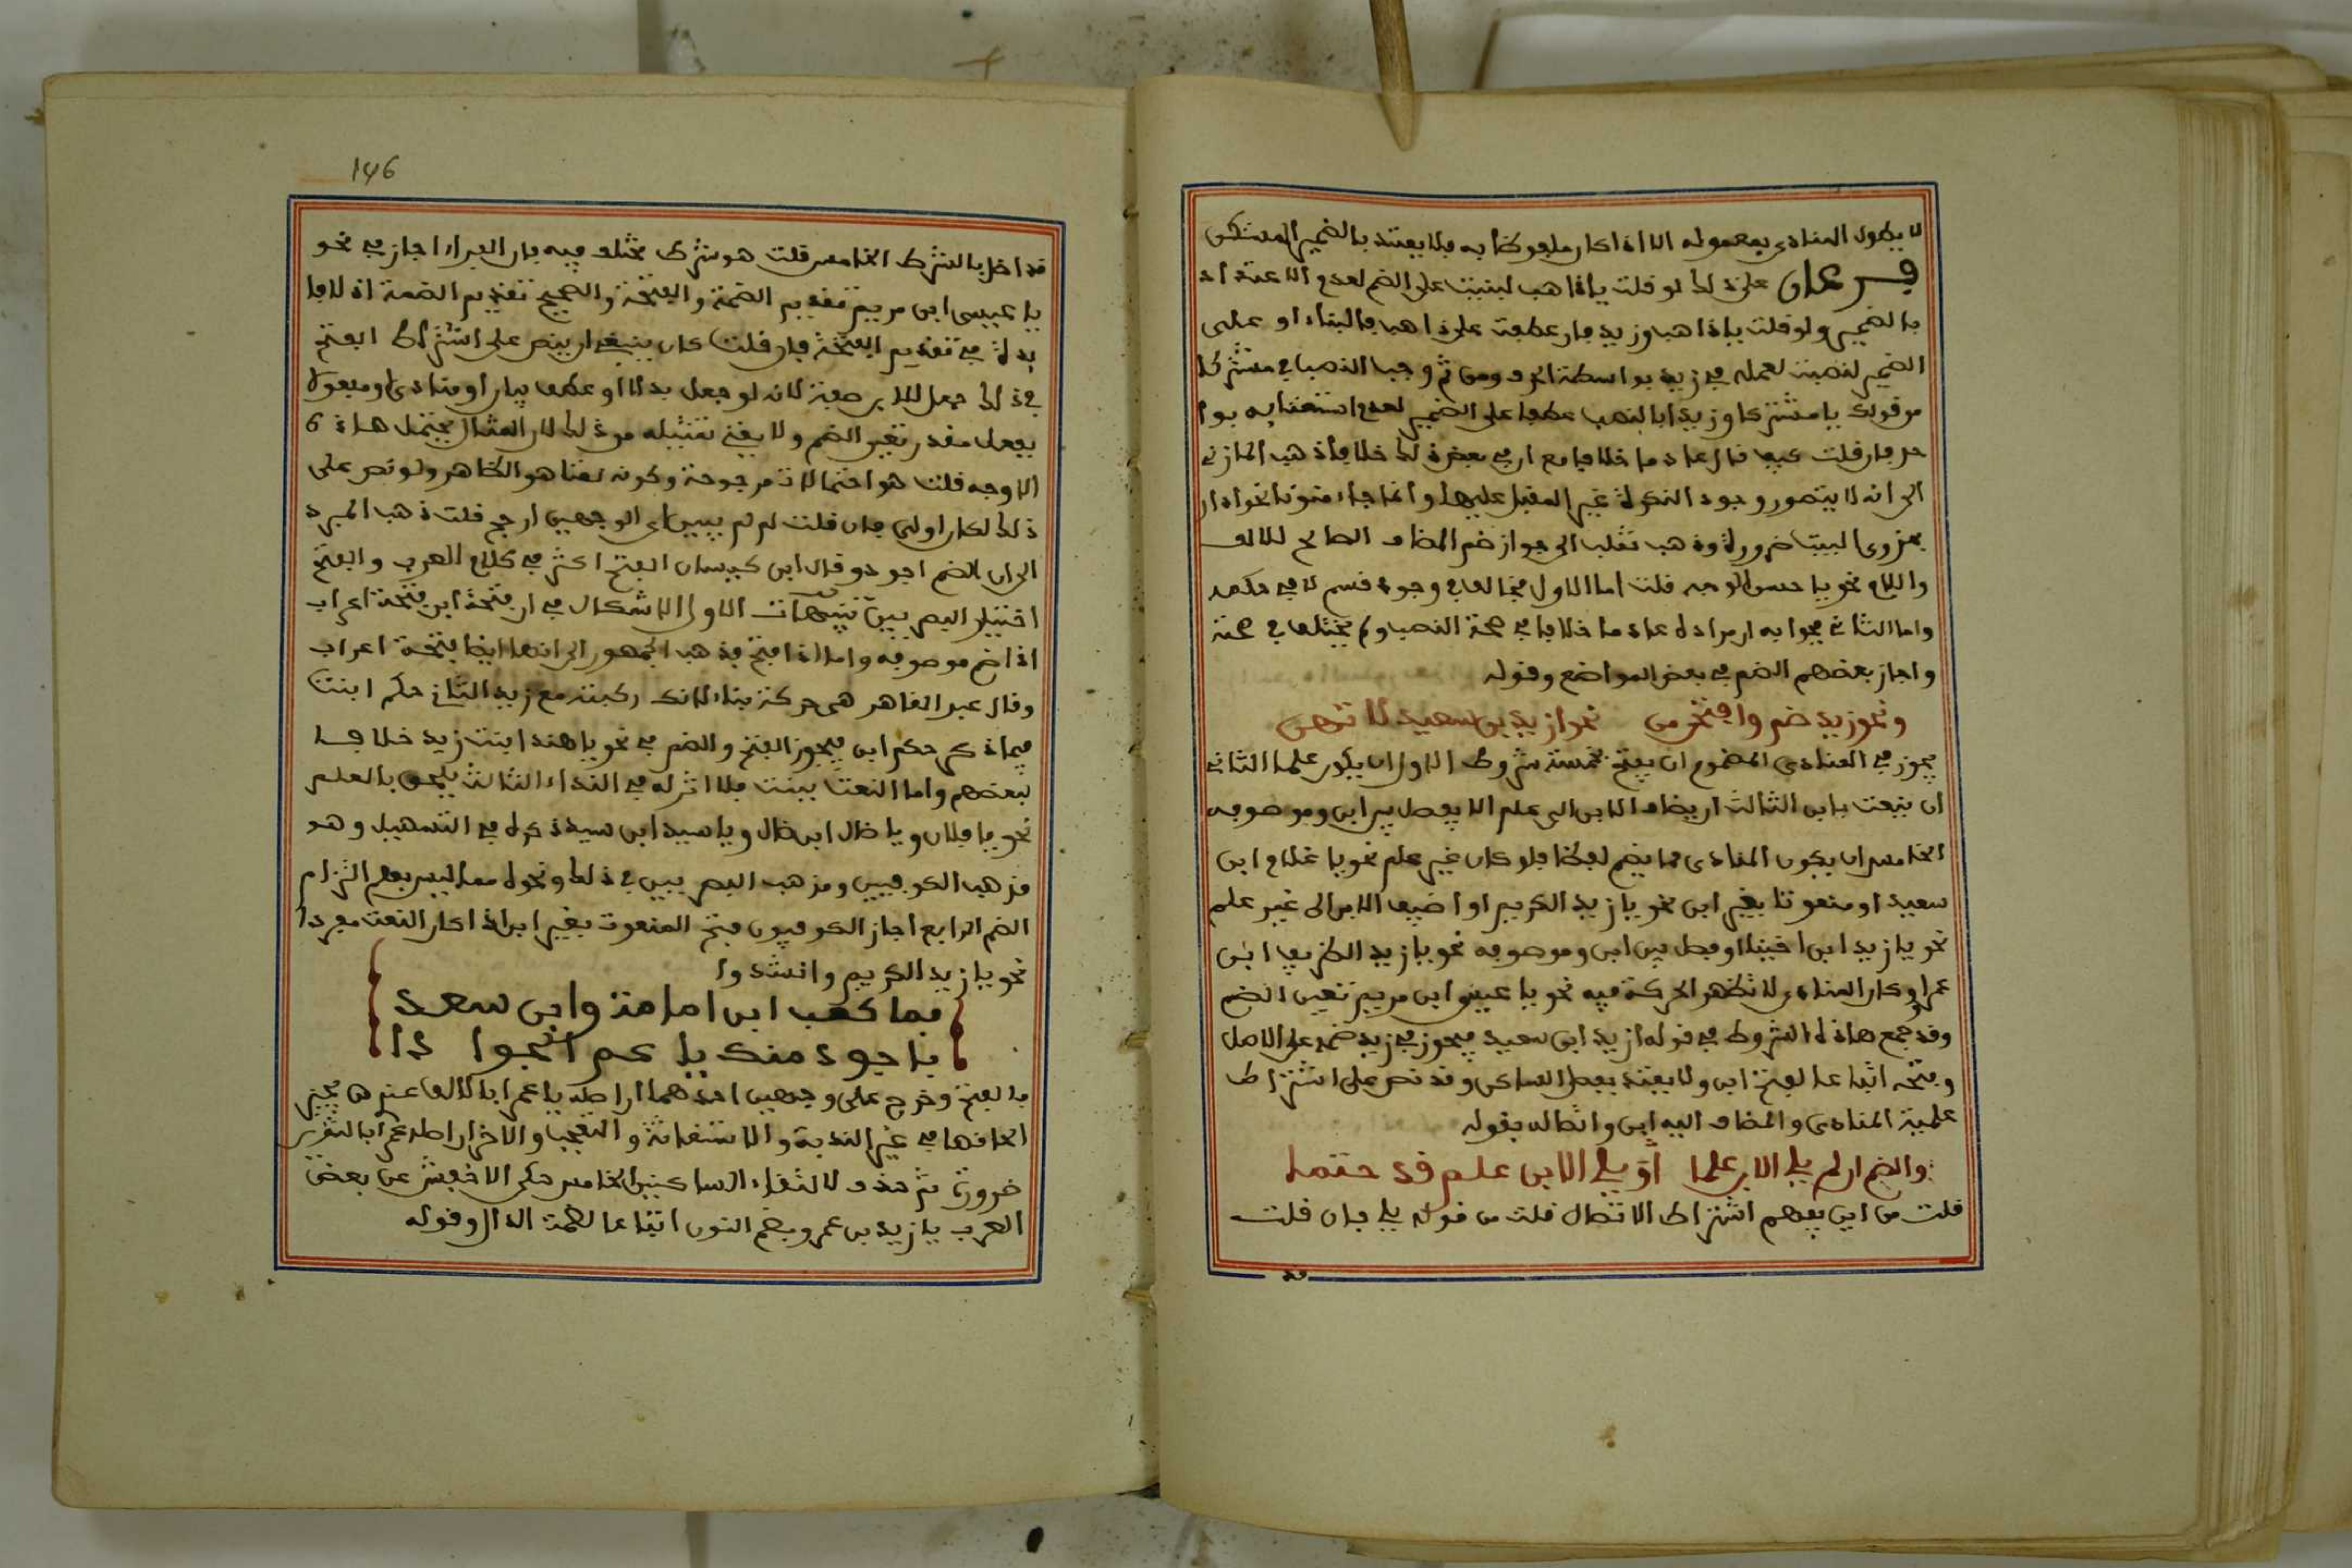 لا يطول المنادى بمعموله الا اذا كان ملفوظا به فلا يعتد بالضمير المستكن
فرعان على ذلك لو قلت يا ذاهب لبنيت على الضم لعدم الاعتداد
بالضمير ولو قلت يا ذاهب وزيد فان عطفت على ذاهب فالبناء او على
الضمير لنصبت لعمله في زيد بواسطة الحرف ومن ثم وجب النصب في مشتركا
من قولك يا مشتركا وزيدا بالنصب عطفا على الضمير لعدم استغنائه بوا
حد فان قلت كيف قال عادما خلافا مع ان في بعض ذلك خلافا ذهب المازني
الى انه لا يتصور وجود النكرة غير المقبل عليها وانما جاء منونا نحو اداراً
بحزوى البيت ضرورة وذهب ثعلب الى جواز ضم المضاف الصالح للالف
واللام نحو يا حسن الوجه قلت اما الاول فخالف في وجود قسم لا في حكمه
واما الثاني فجوابه ان مراده عادما خلافا في صحة النصب ولم يختلف في صحته
واجاز بعضهم الضم في بعض المواضع وقوله
ونحو زيد ضم وافتحن من نحو ازيد بن سعيد لا تهن
يجوز في المنادى المضموم ان يفتح بخمسة شروط الاول ان يكون علما الثاني
ان ينعت بابن الثالث ان يضاف الابن الى علم الا يفصل بين ابن وموصوفه
الخامس ان يكون المنادى مما يضم لفظا فلو كان غير علم نحو يا غلام ابن
سعيد او منعوتا بغير ابن نحو يا زيد الكريم او اضيف الابن الى غير علم
نحو يا زيد ابن اخينا او فصل بين ابن وموصوفه نحو يا زيد الظريف ابن
عمرو وكان المنادى لا تظهر الحركة فيه نحو يا عيسى ابن مريم تعين الضم
وقد جمع هذه الشروط في قوله ازيد ابن سعيد فيجوز في زيد ضمه على الاصل
وفتحه اتباعا لفتح ابن ولا يعتد بفصل الساكن وقد نص على اشتراط
علمية المنادى والمضاف اليه ابن واتصاله بقوله
والضم ان لم يل الابن علما او يل الابن علم قد حتما
قلت من اين يفهم اشتراط الاتصال قلت من قوله يل فان قلت
قد
146
قد اخل بالشرط الخامس قلت هو شرط مختلف فيه فان الفراء اجاز في نحو
يا عيسى ابن مريم تقدير الضمة والفتحة والصحيح تقدير الضمة اذ لا فا
ئدة في تقدير الفتحة فان قلت كان ينبغي ان ينص على اشتراط الفتح
في ذلك جعل الابن صفة لانه لو جعل بدلا او عطف بيان او منادى او مفعولا
بفعل مقدر تعين الضم ولا يغني تمثيله من ذلك لان المثال يحتمل هذه
الاوجه قلت هو احتمالات مرجوحة وكونه نعتا هو الظاهر ولو نص على
ذلك لكان اولى فان قلت لم لم يبين اى الوجهين ارجح قلت ذهب المبرد
الى ان الضم اجود وقال ابن كيسان الفتح اكثر في كلام العرب والفتح
اختيار البصريين تنبيهات الاول لا اشكال في ان فتحة ابن فتحة اعراب
اذا ضم موصوفه واما اذا فتح فذهب الجمهور الى انها ايضا فتحة اعراب
وقال عبد القاهر هى حركة بناء لانك ركبته مع زيد الثاني حكم ابنت
فيما ذكر حكم ابن فيجوز الفتح والضم في نحو يا هند ابنت زيد خلافا
لبعضهم واما النعت ببنت فلا اثر له في النداء الثالث يلحق بالعلم
نحو يا فلان ويا ضال ابن ضال ويا سيد ابن سيد ذكره في التسهيل وهو
مذهب الكوفيين ومذهب البصريين في ذلك ونحوه مما ليس بعلم التزام
الضم الرابع اجاز الكوفيون فتح المنعوت بغير ابن اذا كان النعت مفردا
نحو يا زيد الكريم وانشدوا
فما كعب ابن امامة وابن سعد
باجود منك يا عمر الجوا دا
بالفتح وخرج على وجهين احدهما ان اصله يا عمرا بالالف عند من يجيز
الحاقها في غير الندبة والاستغاثة والتعجب والاخر ان اصله عمرا بالتنوين
ضرورة ثم حذف لالتقاء الساكنين الخامس حكى الاخفش عن بعض
العرب يا زيد بن عمرو بضم النون اتباعا لضمة الدال وقوله